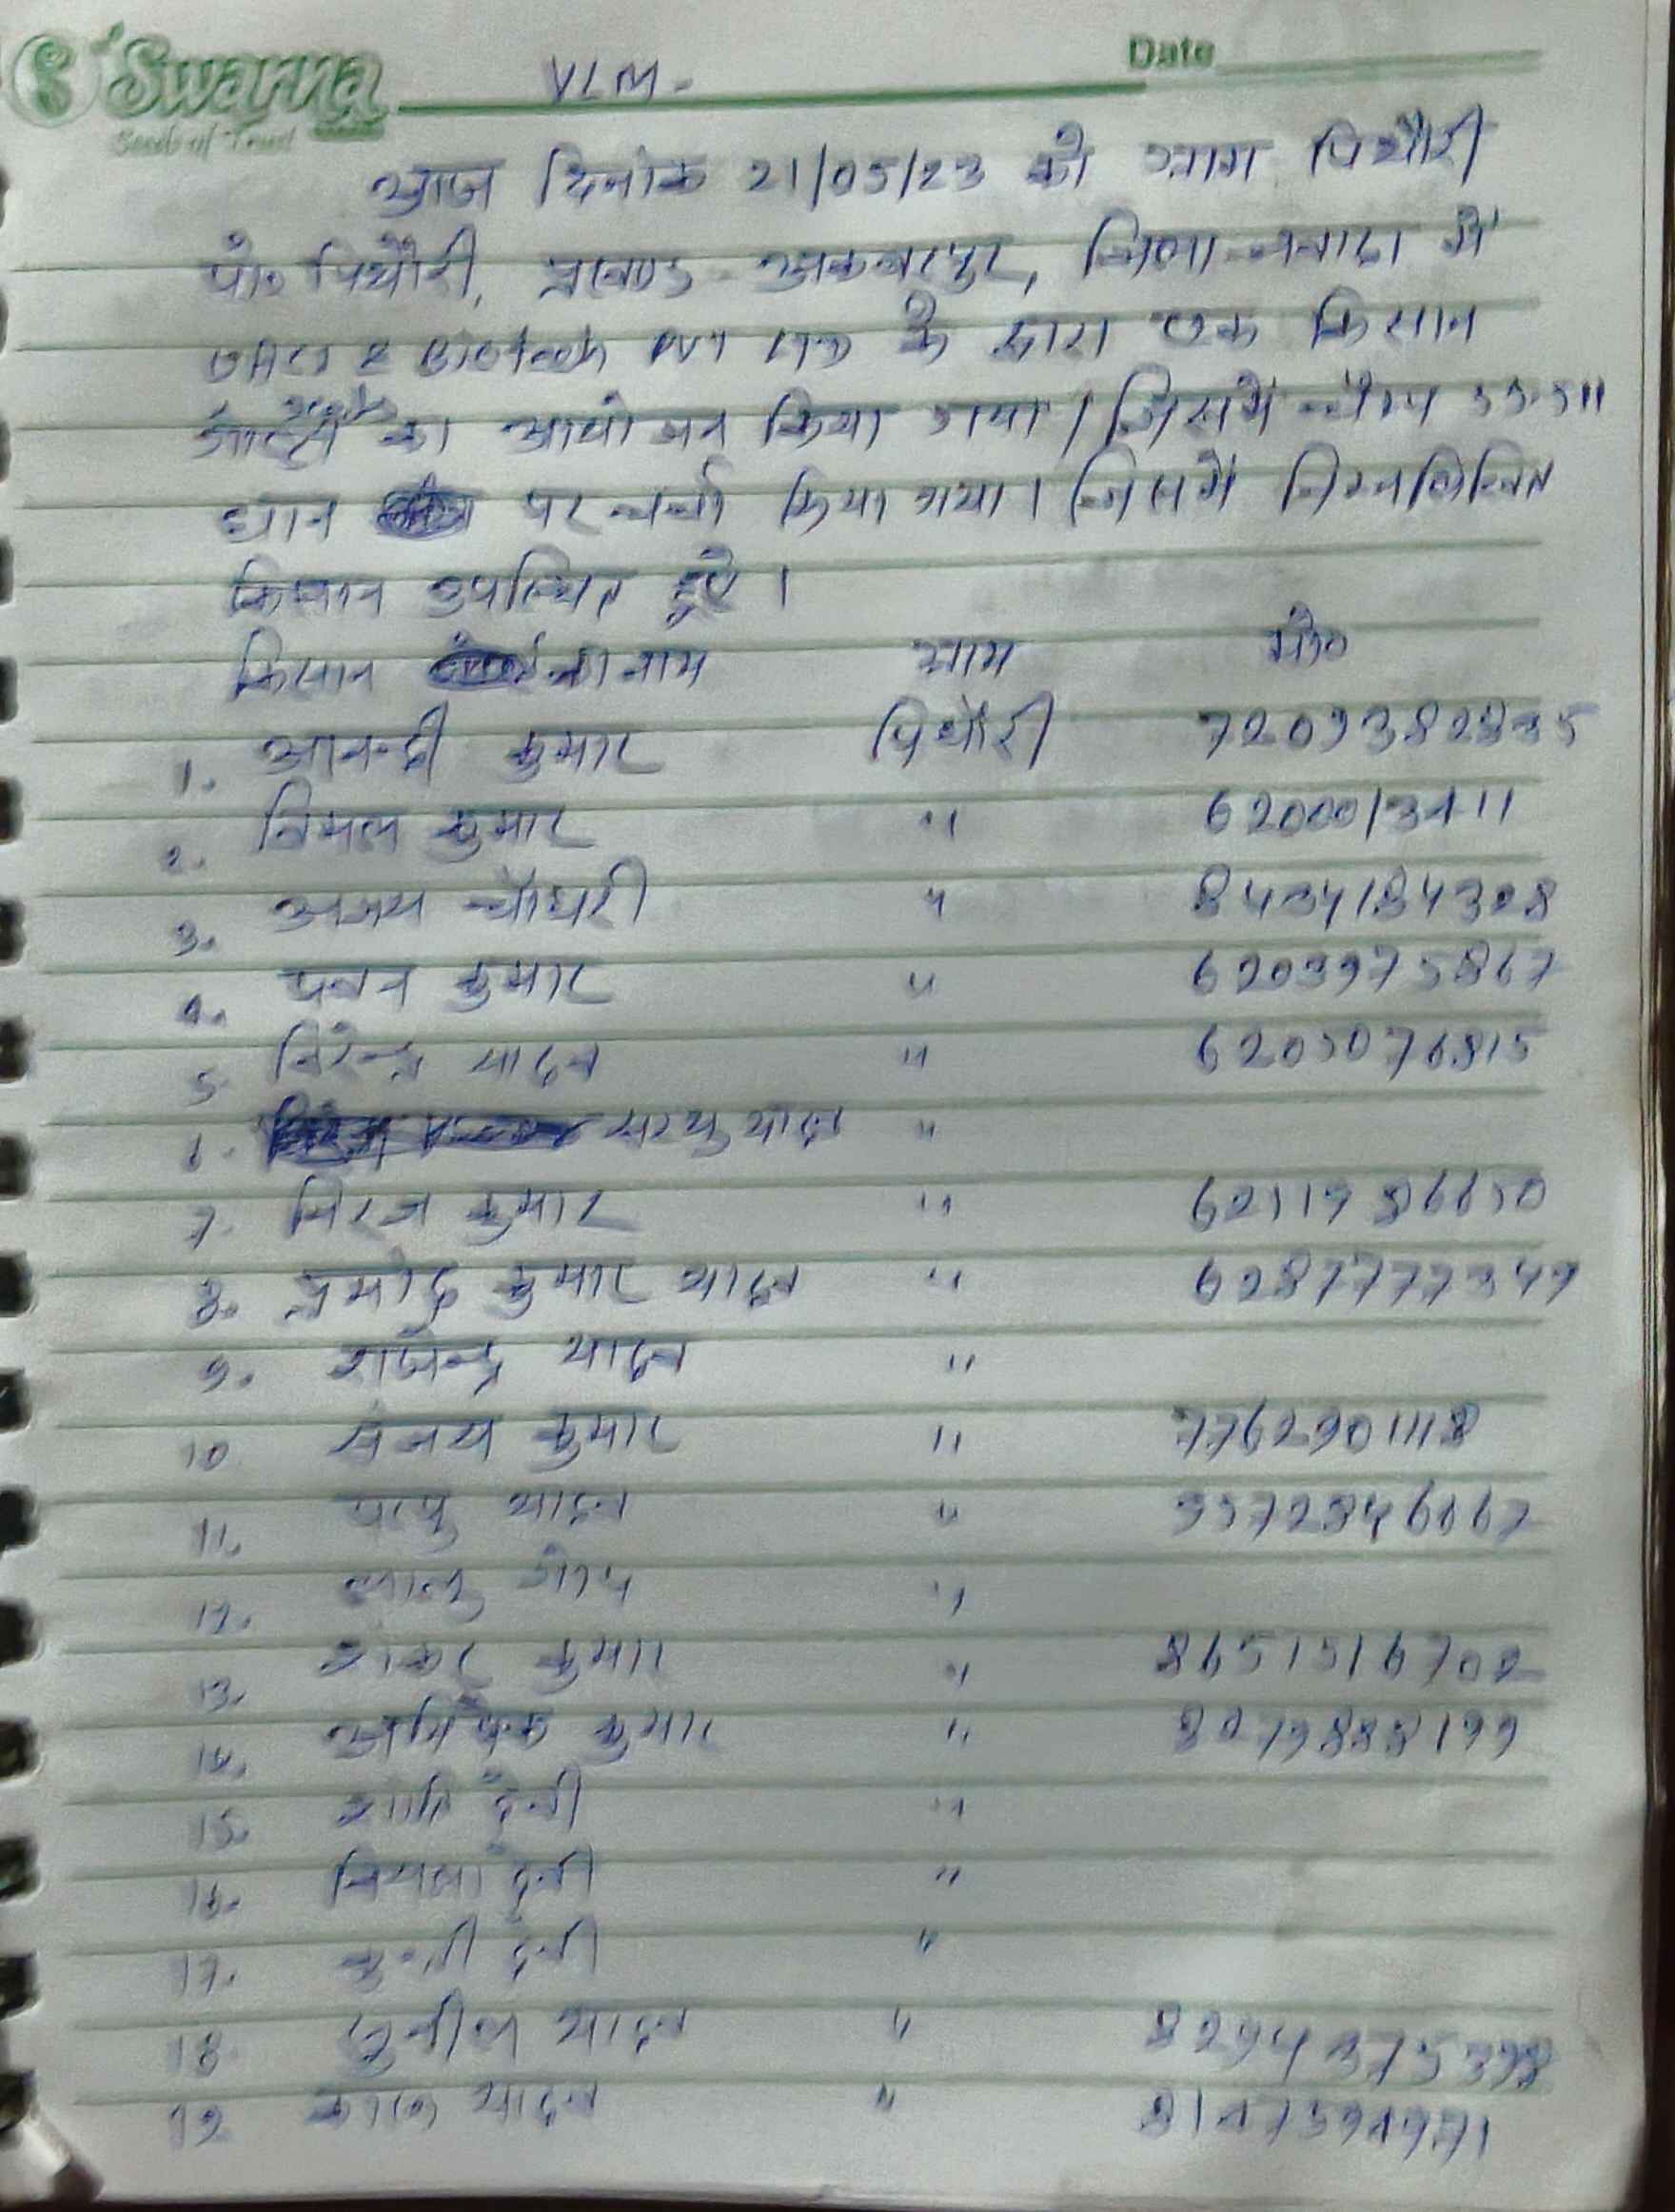 Swarna
Seeds of Trust
VLM -
Date
आज दिनांक 21/05/23 को ग्राम पिथौरी
पो० पिथौरी, प्रखण्ड - अकबरपुर, जिला - नवादा में
Biotech PVT LTD के द्वारा एक किसान
का आयोजन किया गया। जिसमें
धान पर चर्चा किया गया। जिसमें निम्नलिखित
किसान उपस्थित हुए।
किसान का नाम ग्राम मो०
1. आनन्दी कुमार पिथौरी 7209382835
2. विमल कुमार "
3. अजय चौधरी " 8434184308
4. पवन कुमार " 6203975867
5. विरेन्द्र यादव " 6205076815
6. सरयु यादव "
7. निरज कुमार "
8. प्रमोद कुमार यादव " 6287777349
9. राजेन्द्र यादव "
10 संजय कुमार " 7762901118
11. पप्पु यादव "
12. लालु गोप "
13. शंकर कुमार " 8651516702
14. अभिषेक कुमार "
15. शांति देवी "
16. देवी "
17. कुन्ती देवी "
18 सुनील यादव " 8294375398
19 यादव "